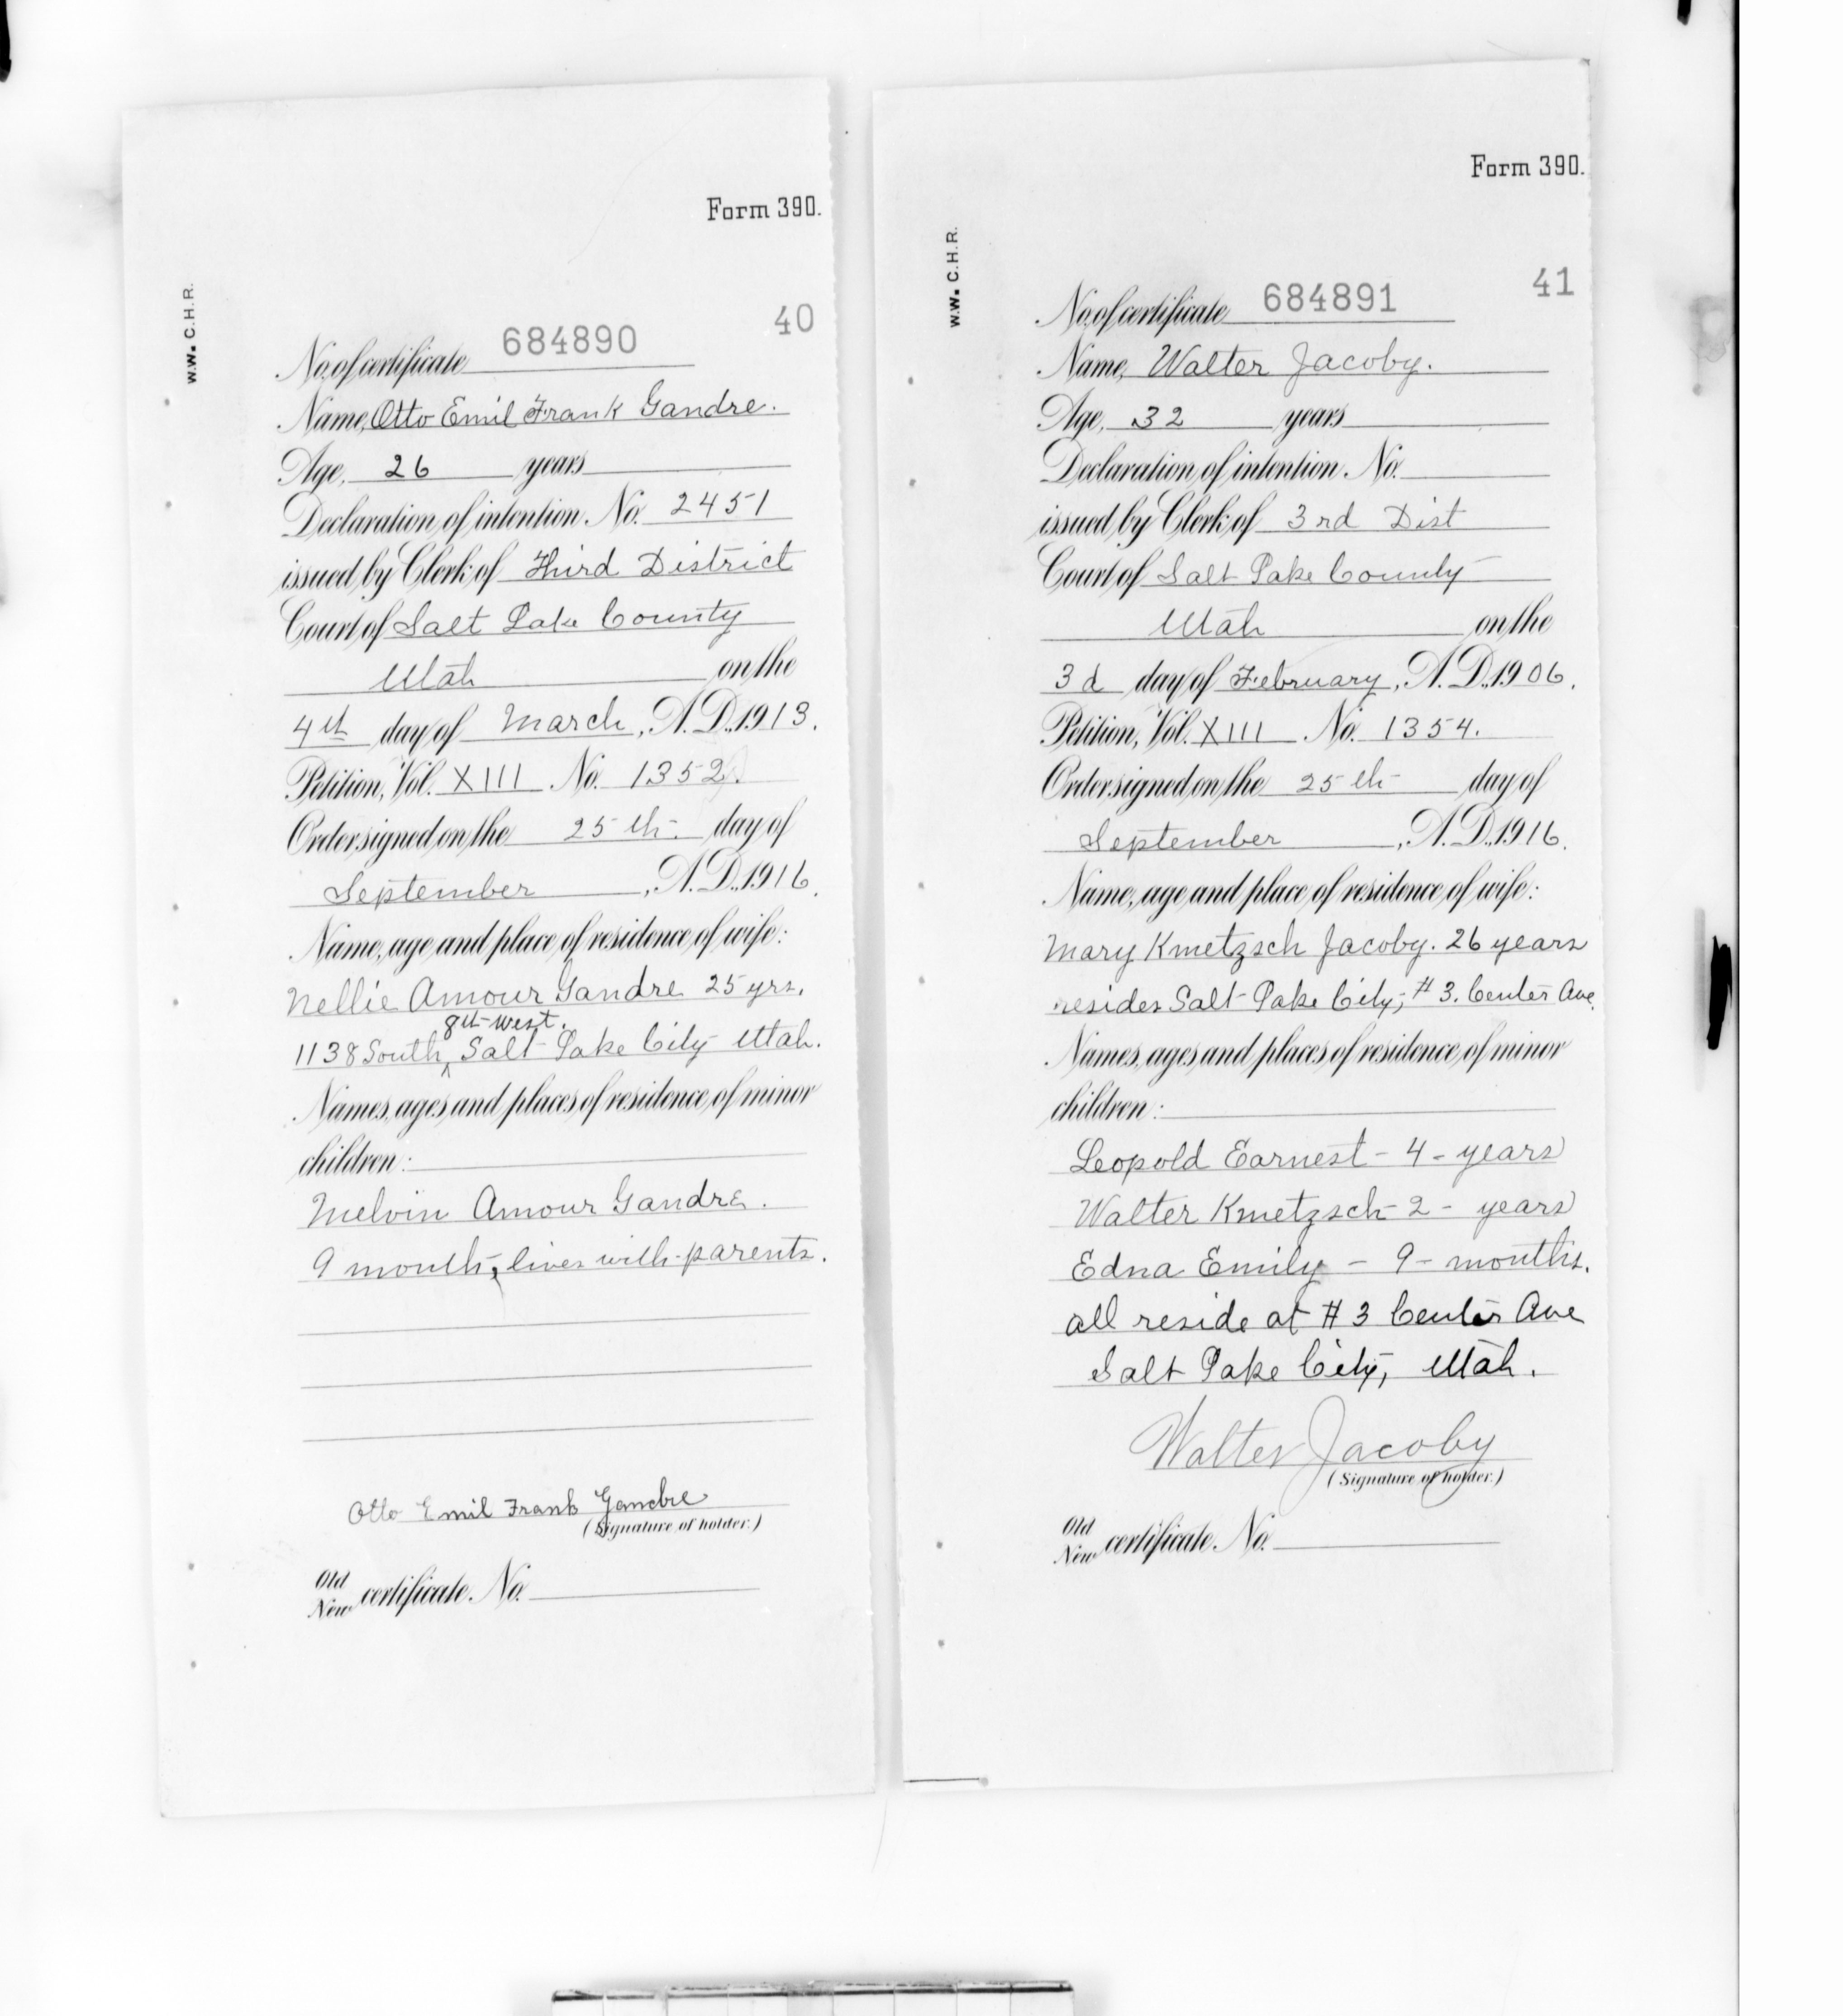 Form 390.
W.W. C.H.R.
40
No. of certificate 684890
Name, Otto Emil Frank Gandre.
Age, 26 years
Declaration of intention No. 2451
issued by Clerk of Third District
Court of Salt Lake County
Utah on the
4th day of March, A.D. 1913.
Petition, Vol. XIII No. 1352.
Order signed on the 25th day of
September, A.D. 1916.
Name, age and place of residence of wife:
Nellie Amour Gandre 25 yrs.
8th west.
1138 South ^ Salt Lake City Utah.
Names, ages and places of residence of minor
children:
Melvin Amour Gandre.
9 month, lives with parents.
Otto Emil Frank Gandre
(Signature of holder.)
Old
New certificate No.
Form 390.
W.W. C.H.R.
41
No. of certificate 684891
Name, Walter Jacoby.
Age, 32 years
Declaration of intention No.
issued by Clerk of 3rd Dist
Court of Salt Lake County
Utah on the
3d day of February, A.D. 1906.
Petition, Vol. XIII No. 1354.
Order signed on the 25th day of
September, A.D. 1916.
Name, age and place of residence of wife:
Mary Kmetzsch Jacoby. 26 years
resides Salt Lake City, #3. Center Ave.
Names, ages and places of residence of minor
children:
Leopold Earnest - 4 - years
Walter Kmetzsch - 2 - years
Edna Emily - 9 - months.
all reside at #3 Center Ave
Salt Lake City, Utah.
Walter Jacoby
(Signature of holder.)
Old
New certificate No.